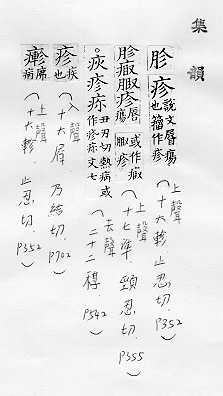 集韻
胗疹 說文脣瘍也籀作疹
(上聲 十六軫 止忍切. P352)
胗 疹 脣瘍 或作
(上聲 十七準 頸忍切. P355)
疢疹 丑刃切熱病或作疹 文七
(去聲 二十二稕. P542)
疹 疾也
(入聲 十六屑 乃結切. P702)
病
(上聲 十六軫 止忍切. P352)